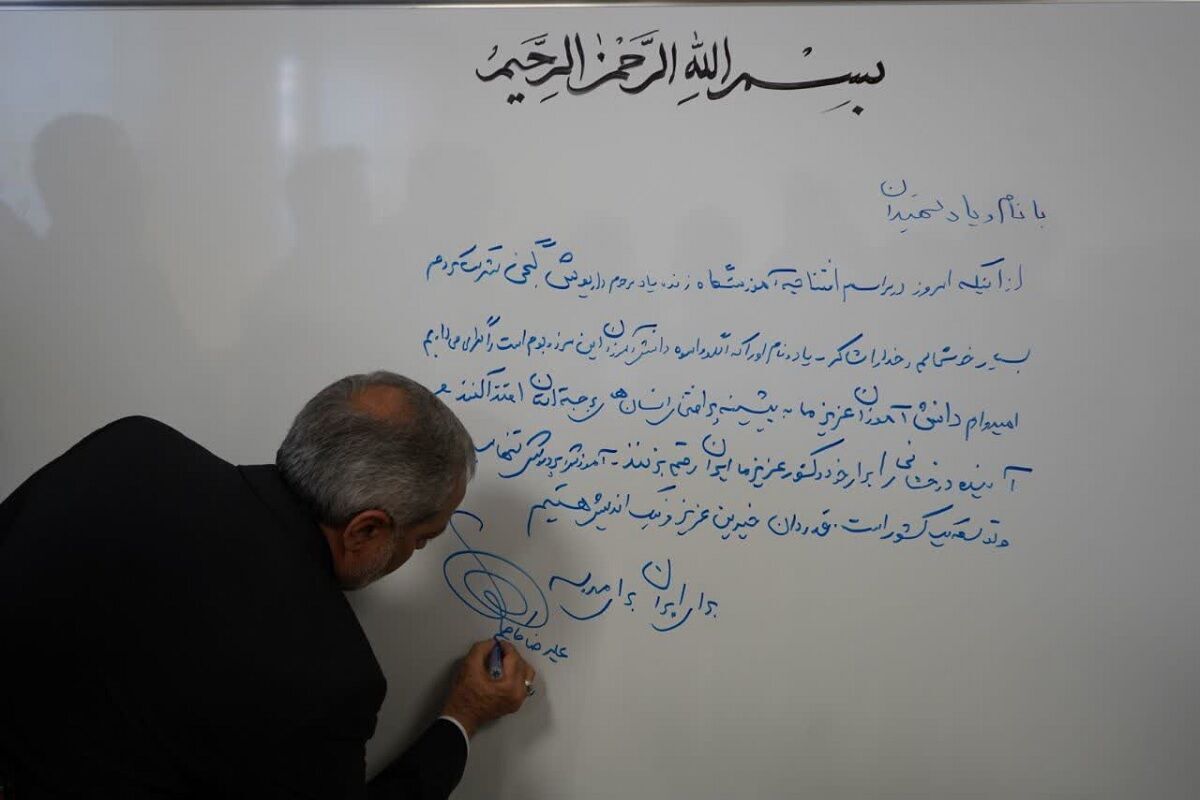 بِسْمِ اللهِ الرَّحْمٰنِ الرَّحِیمِ
با نام و یاد شهیدان
از اینکه امروز در مراسم افتتاحیه آموزشگاه زنده یاد مرحوم داریوش گنجی شرکت کردم
بسیار خوشحالم و خدا را شاکر - یاد و نام او را که دانش آموزان این مرز و بوم است را گرامی می‌داریم
امیدوارم دانش آموزان عزیز ما به پیشینه پر افتخار انسان های برجسته ایران اقتدا کنند و
آینده درخشانی را برای خود و کشور عزیز ما ایران رقم بزنند - آموزش و پرورش تنها
کشور است. قدردان خیرین عزیز و نیک اندیش هستیم
برای ایران برای مدرسه
علیرضا کاظمی